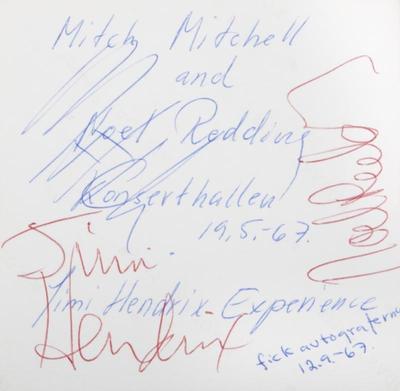 Mitch Mitchell
and
Noel Redding
Konserthallen
19.5.-67.
Jimi
Jimi Hendrix-Experience
Hendrix
fick autograferna
12.9.-67.